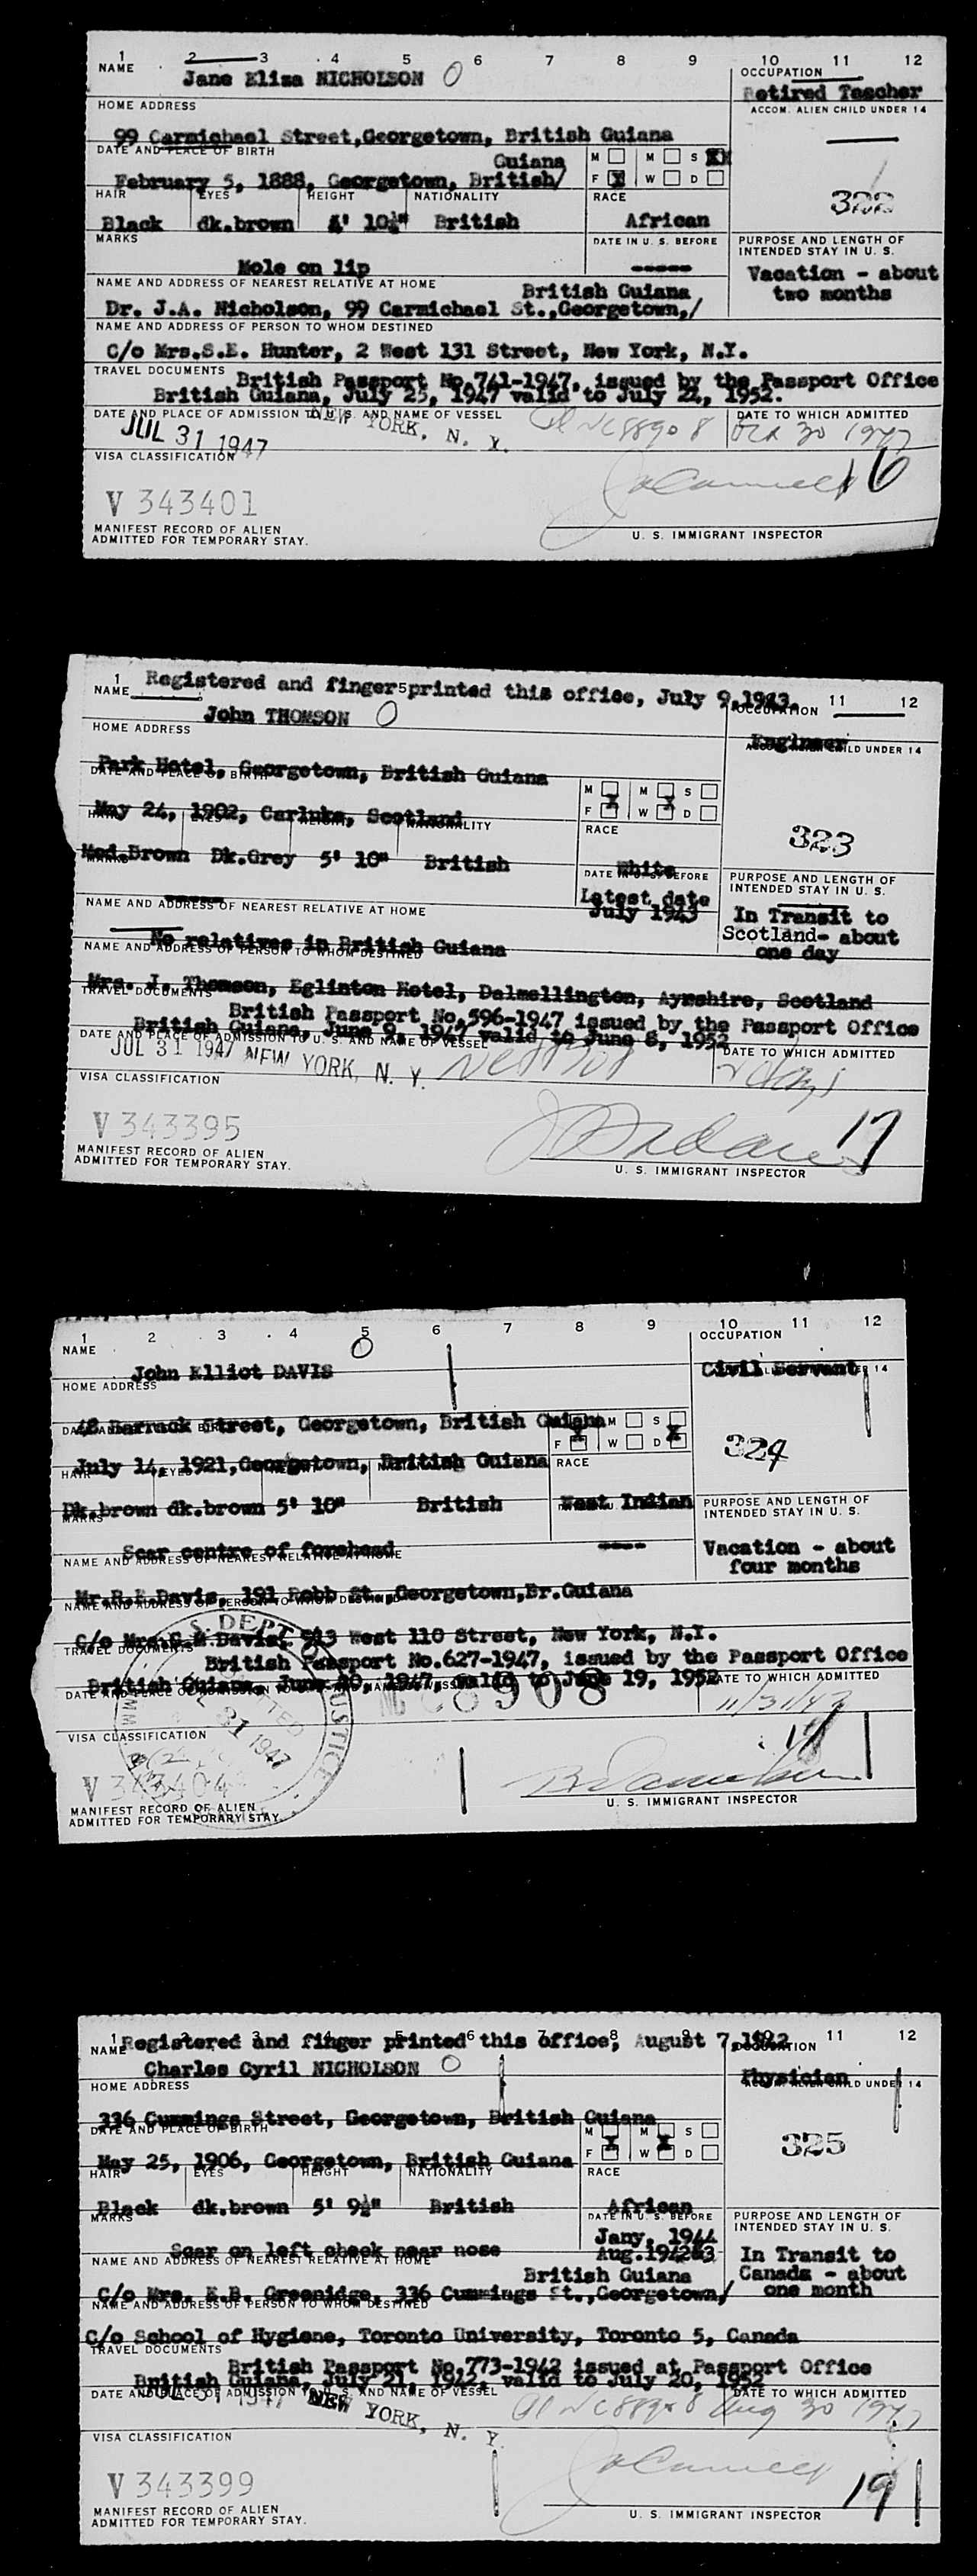 1 2 3 4 5 6 7 8 9 10 11 12
NAME Jane Eliza NICHOLSON O
OCCUPATION
Retired Teacher
HOME ADDRESS
ACCOM. ALIEN CHILD UNDER 14
99 Carmichael Street,Georgetown, British Guiana
DATE AND PLACE OF BIRTH
Guiana
M M S XX
February 5, 1888, Georgetown, British/
F X W D
322
HAIR EYES HEIGHT NATIONALITY RACE
Black dk.brown 4' 10½" British African
MARKS DATE IN U. S. BEFORE PURPOSE AND LENGTH OF
INTENDED STAY IN U. S.
Mole on lip -----
Vacation - about
two months
NAME AND ADDRESS OF NEAREST RELATIVE AT HOME
British Guiana
Dr. J.A. Nicholson, 99 Carmichael St.,Georgetown,/
NAME AND ADDRESS OF PERSON TO WHOM DESTINED
C/o Mrs.S.E. Hunter, 2 West 131 Street, New York, N.Y.
TRAVEL DOCUMENTS British Passport No.741-1947, issued by the Passport Office
British Guiana, July 25, 1947 valid to July 24, 1952.
DATE AND PLACE OF ADMISSION TO U. S. AND NAME OF VESSEL DATE TO WHICH ADMITTED
JUL 31 1947 NEW YORK, N. Y. NC 88908 Oct 30 1947
VISA CLASSIFICATION
16
V 343401
MANIFEST RECORD OF ALIEN
ADMITTED FOR TEMPORARY STAY.
U. S. IMMIGRANT INSPECTOR
1 5 11 12
NAME Registered and fingerprinted this office, July 9,1943.
OCCUPATION
John THOMSON O
HOME ADDRESS
Engineer
ACCOM. ALIEN CHILD UNDER 14
Park Hotel, Georgetown, British Guiana
DATE AND PLACE OF BIRTH
M X M X S
May 24, 1902, Carluke, Scotland
F W D
323
HAIR EYES HEIGHT NATIONALITY RACE
Med.Brown Dk.Grey 5' 10" British White
MARKS DATE IN U. S. BEFORE PURPOSE AND LENGTH OF
INTENDED STAY IN U. S.
Latest date
July 1943
In Transit to
Scotland- about
one day
NAME AND ADDRESS OF NEAREST RELATIVE AT HOME
No relatives in British Guiana
NAME AND ADDRESS OF PERSON TO WHOM DESTINED
Mrs. J. Thomson, Eglinton Hotel, Dalmellington, Ayrshire, Scotland
TRAVEL DOCUMENTS
British Passport No.596-1947 issued by the Passport Office
British Guiana, June 9, 1947 valid to June 8, 1952
DATE AND PLACE OF ADMISSION TO U. S. AND NAME OF VESSEL DATE TO WHICH ADMITTED
JUL 31 1947 NEW YORK, N. Y. NC 88908 2 days
VISA CLASSIFICATION
17
V 343395
MANIFEST RECORD OF ALIEN
ADMITTED FOR TEMPORARY STAY.
U. S. IMMIGRANT INSPECTOR
1 2 3 4 5 6 7 8 9 10 11 12
NAME O
OCCUPATION
John Elliot DAVIS
Civil Servant
HOME ADDRESS
14
48 Barrack Street, Georgetown, British Guiana
M S
F X W D X
324
July 14, 1921,Georgetown, British Guiana
HAIR EYES RACE
Dk.brown dk.brown 5' 10" British West Indian
MARKS PURPOSE AND LENGTH OF
INTENDED STAY IN U. S.
Scar centre of forehead ----
Vacation - about
four months
NAME AND ADDRESS OF NEAREST RELATIVE AT HOME
Mr.R.E.Davis, 191 Robb St.,Georgetown,Br.Guiana
NAME AND ADDRESS OF PERSON TO WHOM DESTINED
C/o Mrs.C.M.Davis, 513 West 110 Street, New York, N.Y.
TRAVEL DOCUMENTS
British Passport No.627-1947, issued by the Passport Office
British Guiana, June 20, 1947, valid to June 19, 1952
DATE AND PLACE OF ADMISSION TO U. S. AND NAME OF VESSEL DATE TO WHICH ADMITTED
U. S. DEPT. OF JUSTICE
ADMITTED
JUL 31 1947
NC 88908
11/31/47
VISA CLASSIFICATION
18
V 343404
MANIFEST RECORD OF ALIEN
ADMITTED FOR TEMPORARY STAY.
U. S. IMMIGRANT INSPECTOR
1 2 3 4 5 6 7 8 9 10 11 12
NAME Registered and finger printed this office, August 7,1942
OCCUPATION
Charles Cyril NICHOLSON O
HOME ADDRESS
Physician
ACCOM. ALIEN CHILD UNDER 14
336 Cummings Street, Georgetown, British Guiana
DATE AND PLACE OF BIRTH
M X M X S
F W D
325
May 25, 1906, Georgetown, British Guiana
HAIR EYES HEIGHT NATIONALITY RACE
Black dk.brown 5' 9½" British African
MARKS DATE IN U. S. BEFORE PURPOSE AND LENGTH OF
INTENDED STAY IN U. S.
Jany, 1944
Scar on left cheek near nose Aug.1942&3
In Transit to
Canada - about
one month
NAME AND ADDRESS OF NEAREST RELATIVE AT HOME
British Guiana
C/o Mrs. E.B. Greenidge, 336 Cummings St.,Georgetown/
NAME AND ADDRESS OF PERSON TO WHOM DESTINED
C/o School of Hygiene, Toronto University, Toronto 5, Canada
TRAVEL DOCUMENTS
British Passport No.773-1942 issued at Passport Office
British Guiana, July 21, 1942, valid to July 20, 1952
DATE AND PLACE OF ADMISSION TO U. S. AND NAME OF VESSEL DATE TO WHICH ADMITTED
1947 NEW YORK, N. Y. NC 88908 Aug 30 1947
VISA CLASSIFICATION
19
V 343399
MANIFEST RECORD OF ALIEN
ADMITTED FOR TEMPORARY STAY.
U. S. IMMIGRANT INSPECTOR